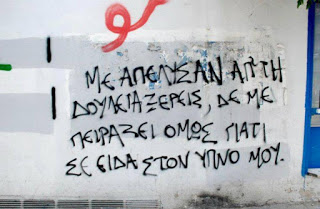 ΜΕ ΑΠΕΛΥΣΑΝ ΑΠ'ΤΗ
ΔΟΥΛΕΙΑ ΞΕΡΕΙΣ, ΔΕ ΜΕ
ΠΕΙΡΑΞΕΙ ΟΜΩΣ ΓΙΑΤΙ
ΣΕ ΕΙΔΑ ΣΤΟΝ ΥΠΝΟ ΜΟΥ.